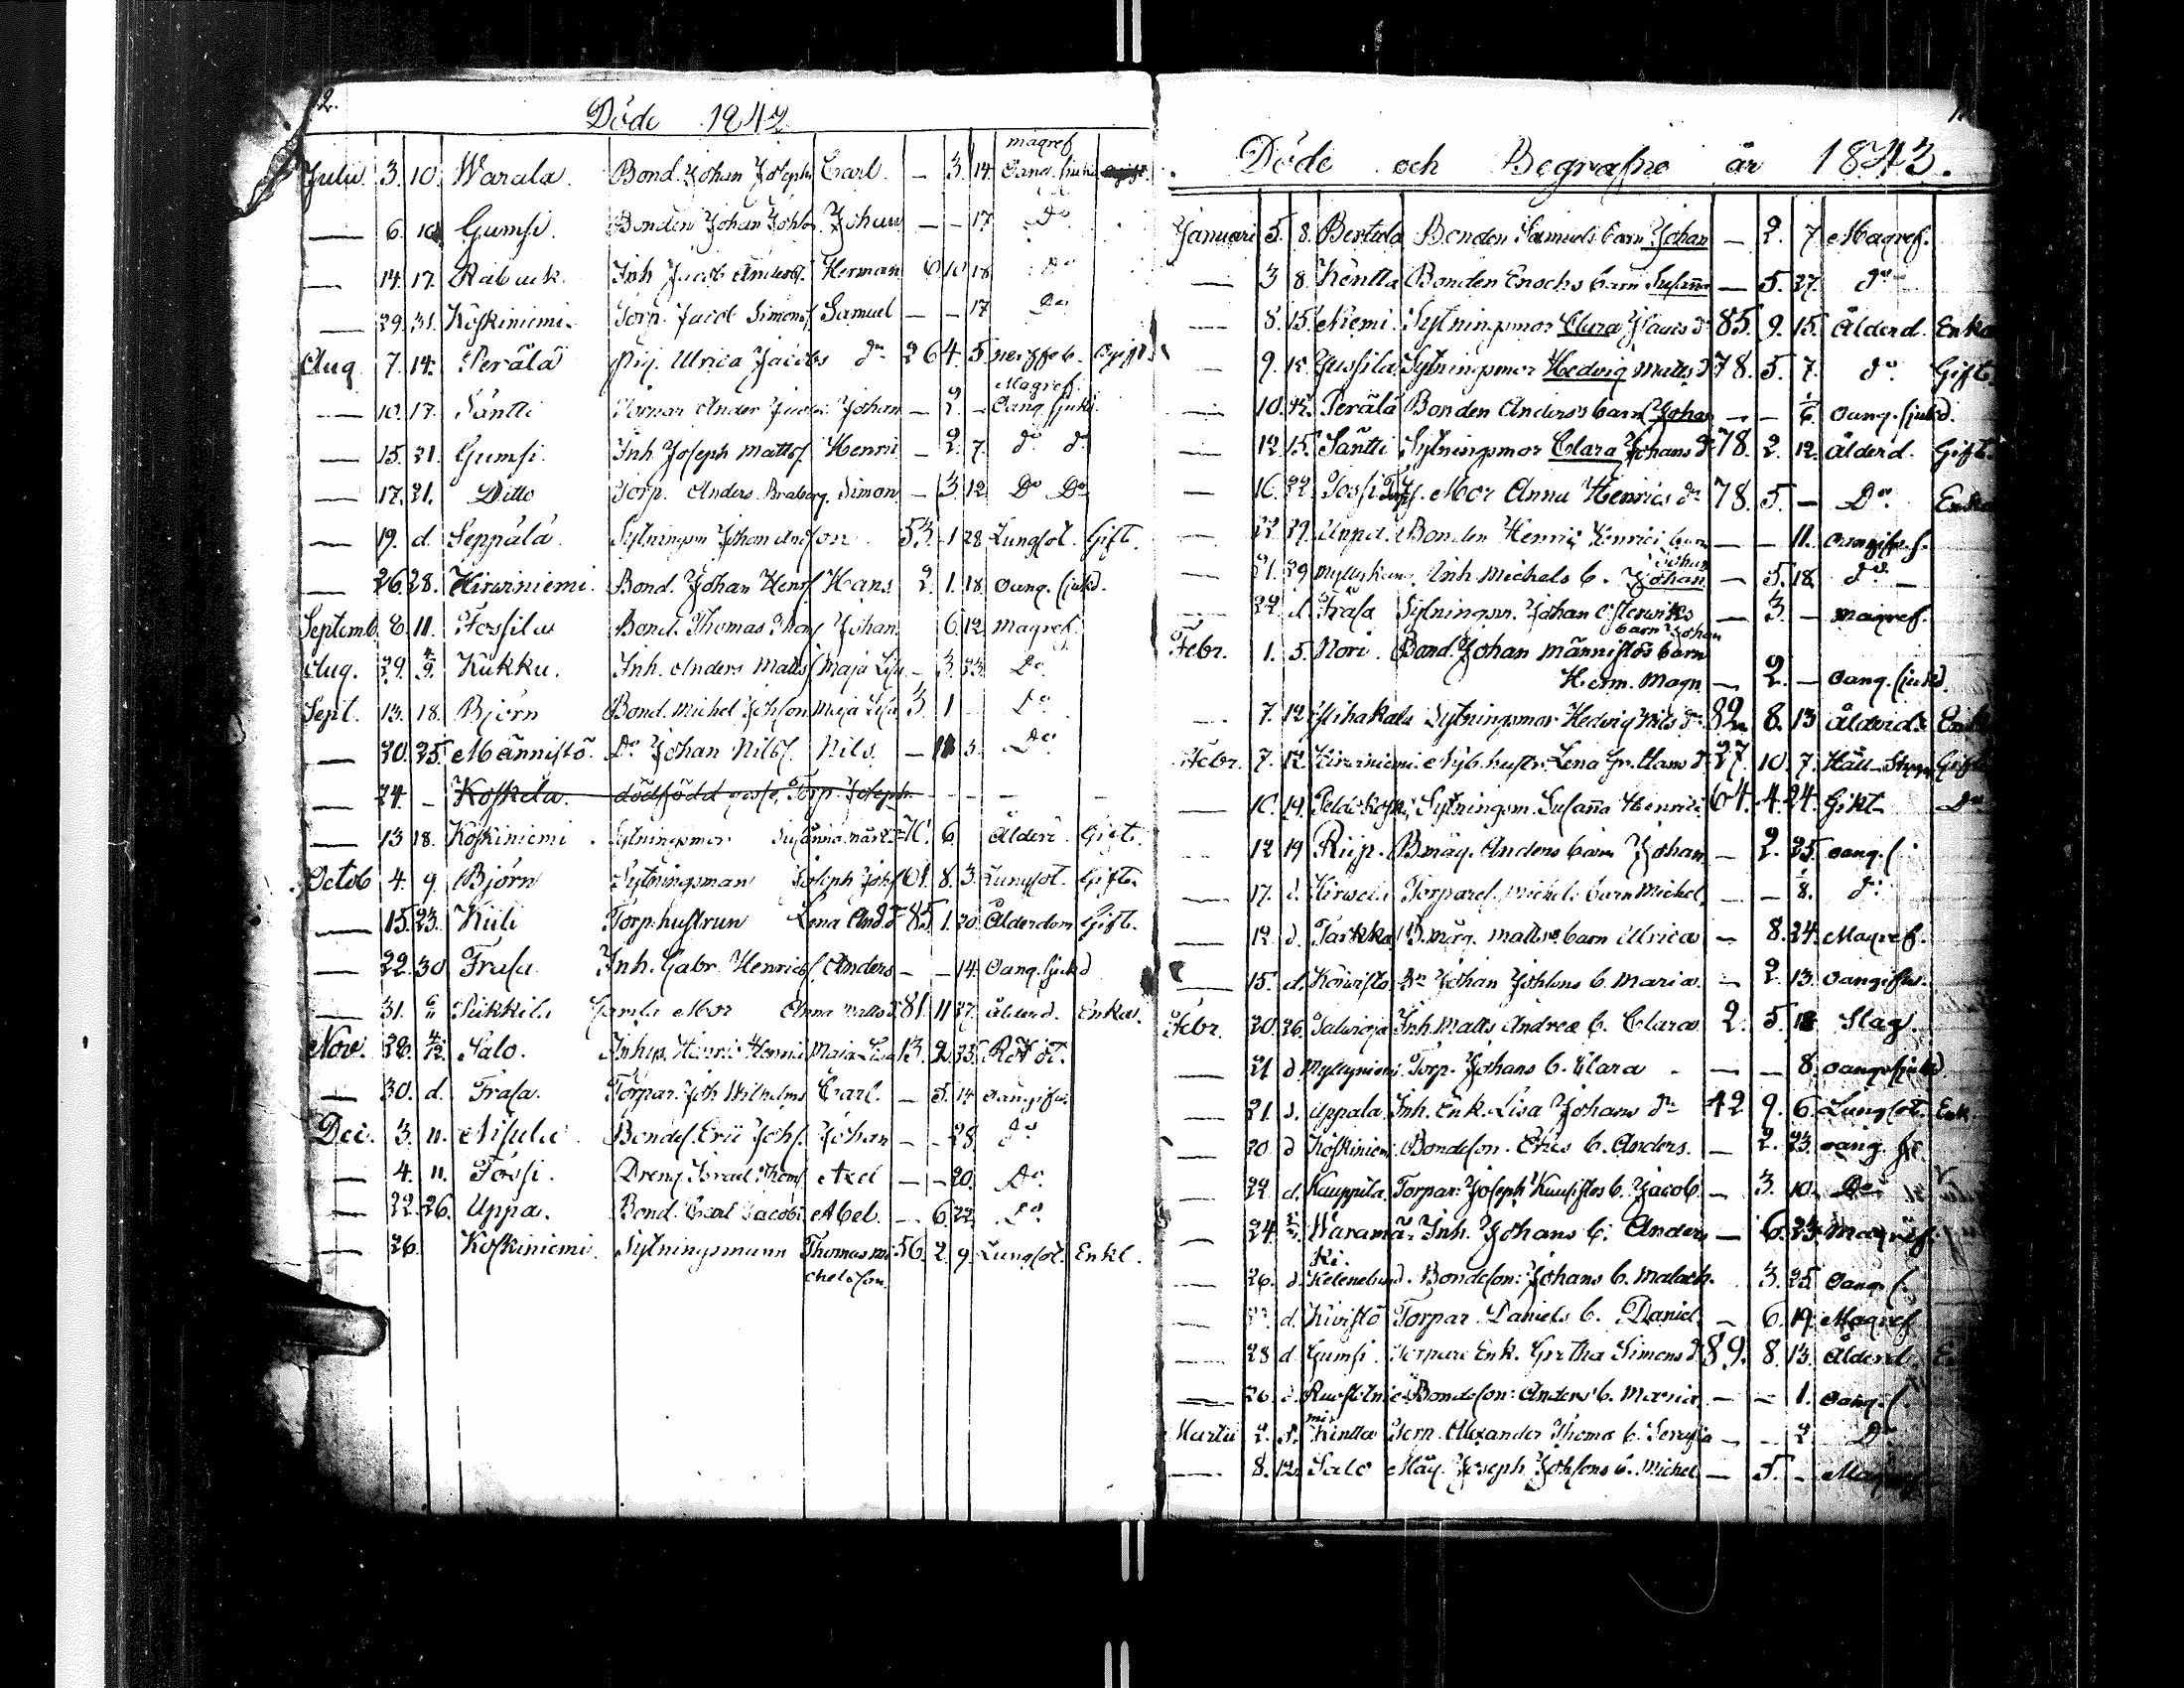 2.
Döde 1842
magref
Julii 3. 10. Warala. Bond. Johan Josephs Carl. — 3. 14 Oang. sjukd
— 6. 10 Gumsi. Bonden Johan Johs. Johan — — 17. Do
— 14. 17. Rabuck. Inh. Jacob Anders. Herman 6 10 18 Do
— 29. 31. Koskiniemi. Torp. Jacob Simons. Samuel — — 17 Do
Aug. 7. 14. Perälä Pig. Ulrica Jacobs dr 26 4. 5. Ogift.
Magref.
— 10. 17. Säntti Anders Johan — 2. — Oang. sjukd.
— 15. 21. Gumsi. Inh. Joseph Matts. Henric — 2. 7. do do
— 17. 21. Ditto Torp. Anders Braberg. Simon — 3 12 Do Do
— 19. d. Seppälä. Sytningsm Johan Andson. 53. 1 28 Lungsot. Gift.
— 26. 28. Hirwiniemi. Bond. Johan Henrs. Hans 2. 1. 18. Oang. sjukd.
Septemb. 8. 11. Fossila Bond. Thomas Thoms Johan 6. 12. Magref.
Aug. 29. 4/9. Kukku. Inh. Anders Matts. Maja Lisa — 3. 23. Do
Sept. 13. 18. Björn Bond. Michel Johsson Maja Lisa 3. 1 Do
— 20. 25. Männistö. Do Johan Nils. Nils. — 3. Do
— 24. — Koskela. dödfödd gosse, Torp. Joseph — — — —
— 13 18. Koskiniemi. Sytningsmor Susanna 76. 6 Ålderd. Gift.
Octob. 4. 9. Björn Sytningsman Joseph Johs. 61. 8. 3. Lungsot. Gift.
— 15. 23. Kuli Torp. hustrun Lena And. dr 85. 1. 20. Ålderdom Gift.
— 22. 30 Frasa Inh. Gabr. Henrics. Anders — — 14. Oang. sjukd
— 31. 6/11 Pukkila Gamla Mor Anna Matts dr 81. 11 27. Ålderd. Enka.
Nov. 28. 4/12. Salo. Inhys. Henric Maja Lisa 13. 2. 25. Röt
— 30. d. Frasa. Torpar. Joh Wilhelms Carl. — 5. 14 oangifw.
Dec. 3. 11. Nisula Bondes. Eric Johs. Johan — — 28. do
— 4. 11. Fossi. Dreng. Israel Thoms Axel — — 20. Do
— 22. 26. Uppa. Bond. Carl Jacobs Abel. — 6. 22. Do
— 26. Koskiniemi. Sytningsmann Thomas Mi 56. 2. 9. Lungsot. Enkl.
chelsson.
Döde och Begrafne år 1843.
Januari 5. 8. Bertula Bonden Samuels barn Johan — 2. 7 Magref.
— 3 8. Kentta Bonden Enochs barn Susanna — 5. 27. do
— 8. 15. Niemi. Sytningsmor Clara Davids dr 85. 9. 15. Ålderd. Enka
— 9. 15. Jussila Sytningsmor Hedvig Matts dr 78. 5. 7. do Gift.
— 10. 15. Perälä Bonden Anders's barn Johan — — 1/6 oang. sjukd.
— 12 15. Säntti Sytningsmor Clara Johans dr 78. 2. 12. Ålderd. Gift.
— 16. 22. Fossi Mor Anna Henrics dr 78. 5. — Do Enka
— 22 29. Uppa. Bonden Henric Henrics barn — — 11. oangifw. s.
Johan
— 21. 29 Myllykan. Inh. Michels b. Johan — 5. 18. do —
— 22. d. Frasa Sytningsm. Johan Österwiks — 3. — magref.
barn Johan
Febr. 1. 5. Nori. Bond. Johan Männistös barn
Herm. Magn. — 2. — oang. sjukd.
— 7. 12 Pihakala Sytningsmor Hedvig Nils dr 82. 8. 13 Ålderd. Enka
Febr. 7. 12. Hirwiniemi. Nyb. hustr. Lena Gr. Hans dr 27. 10. 7. Håll Gift
— 16. 19. Sytningsm. Susanna Henrics 64. 4. 24. Gikt Do
— 12 19 Riip. B.mäg. Anders barn Johan — 2. 25. oang. s.
— 17. d. Hirwelä Torparel. Michels barn Michel — — 1/8. do
— 12. d. Parkka B.mäg. Matts's barn Ulrica — 8. 24. Magref.
— 15. d. Koiwisto Johan Johsons b. Maria. — 2. 13. oangifw.
Febr. 20. 26. Salwioja Inh. Matts Andreæ b. Clara 2. 5. 18 Slag.
— 21 d. Myllyniemi. Torp. Johans b. Clara — — — 8. oang. sjukd.
— 21. d. Uppala. Inh. Enk. Lisa Johans dr 42 9. 6. Lungsot. Enk.
— 20 d Koskiniemi. Bondeson. Erics b. Anders. — 2. 23. oang.
— 22. d. Kauppila. Torpar. Joseph Kuusistos b. Jacob. — 3. 10. Do
— 24. Waramä- Inh. Johans b. Anders — 6. 23. Magref.
ki.
— 26. d. Kelenelund. Bondeson: Johans b. Malach. 3. 25. oang. s.
— d. Kivistö Torpar Daniels b. Daniel. — 6. 19. Magref.
— 28 d. Gumsi. Torpare Enk. Gretha Simons dr 89. 8. 13. Ålderd.
— 26. d. Ruostelnie Bondeson: Anders b. Maria — — 1. oang. s.
mi
Martii 2. 5. Kentta Torp. Alexander Thomæ b. — — 2. Do
— 8. 12. Salo Mäg. Joseph Johsons b. Michel — 5. — Magref